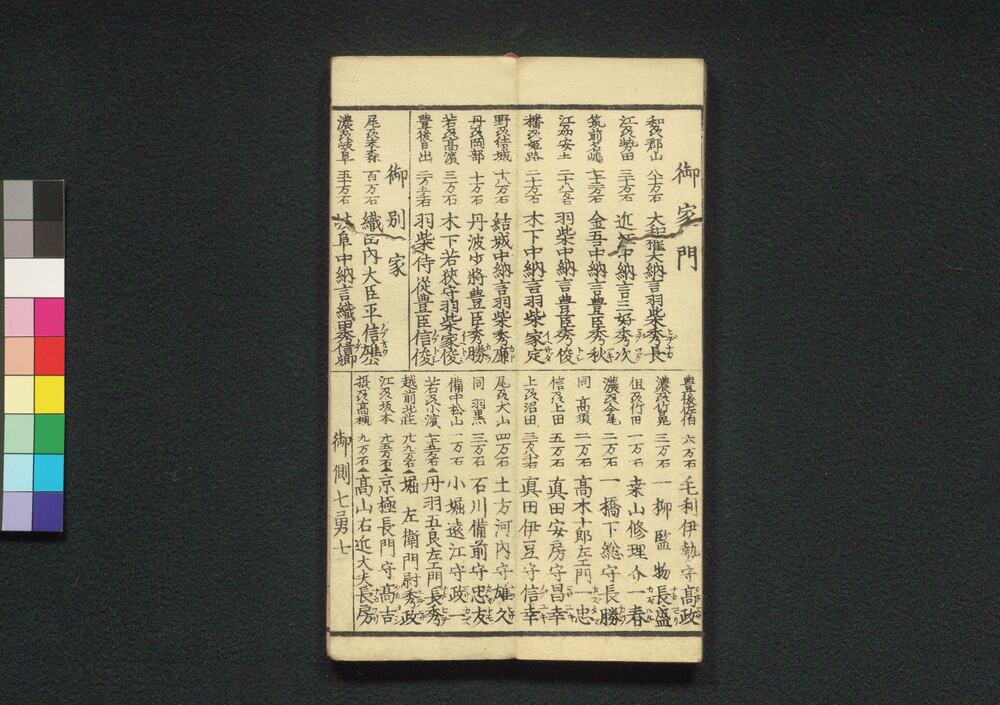 御家門
和州郡山 八十万石 大和権大納言羽柴秀長
江州勢田 三十万石 近江中納言三好秀次
筑前名嶋 金吾中納言豊臣秀秋
江州安土 羽柴中納言豊臣秀俊
播州姫路 二十万石 木下中納言羽柴家定
野州結城 十八万石 結城中納言羽柴秀康
丹州岡部 十万石 丹波少将豊臣秀勝
若州高濱 三万石 木下若狭守羽柴家俊
豊後日出 羽柴侍従豊臣信俊
御別家
尾州 百万石 織田内大臣平信雄公
濃州岐阜 五十万石 岐阜中納言織田秀信卿
豊後佐伯 六万石 毛利伊勢守高政
濃州竹鼻 三万石 一柳監物長盛
但州竹田 一万石 桒山修理介一春
濃州今尾 二万石 一橋下総守長勝
同 高須 二万石 高木十郎左エ門一忠
信州上田 五万石 真田安房守昌幸
上州沼田 真田伊豆守信幸
尾州犬山 四万石 土方河内守雄久
同 羽黒 三万石 石川備前守忠友
備中松山 一万石 小堀遠江守政一
若州小濱 丹羽五良左エ門長秀
越前北荘 堀左衛門尉秀政
江州坂本 京極長門守高吉
摂州高槻 九万石 高山右近大夫長房
御側七勇士